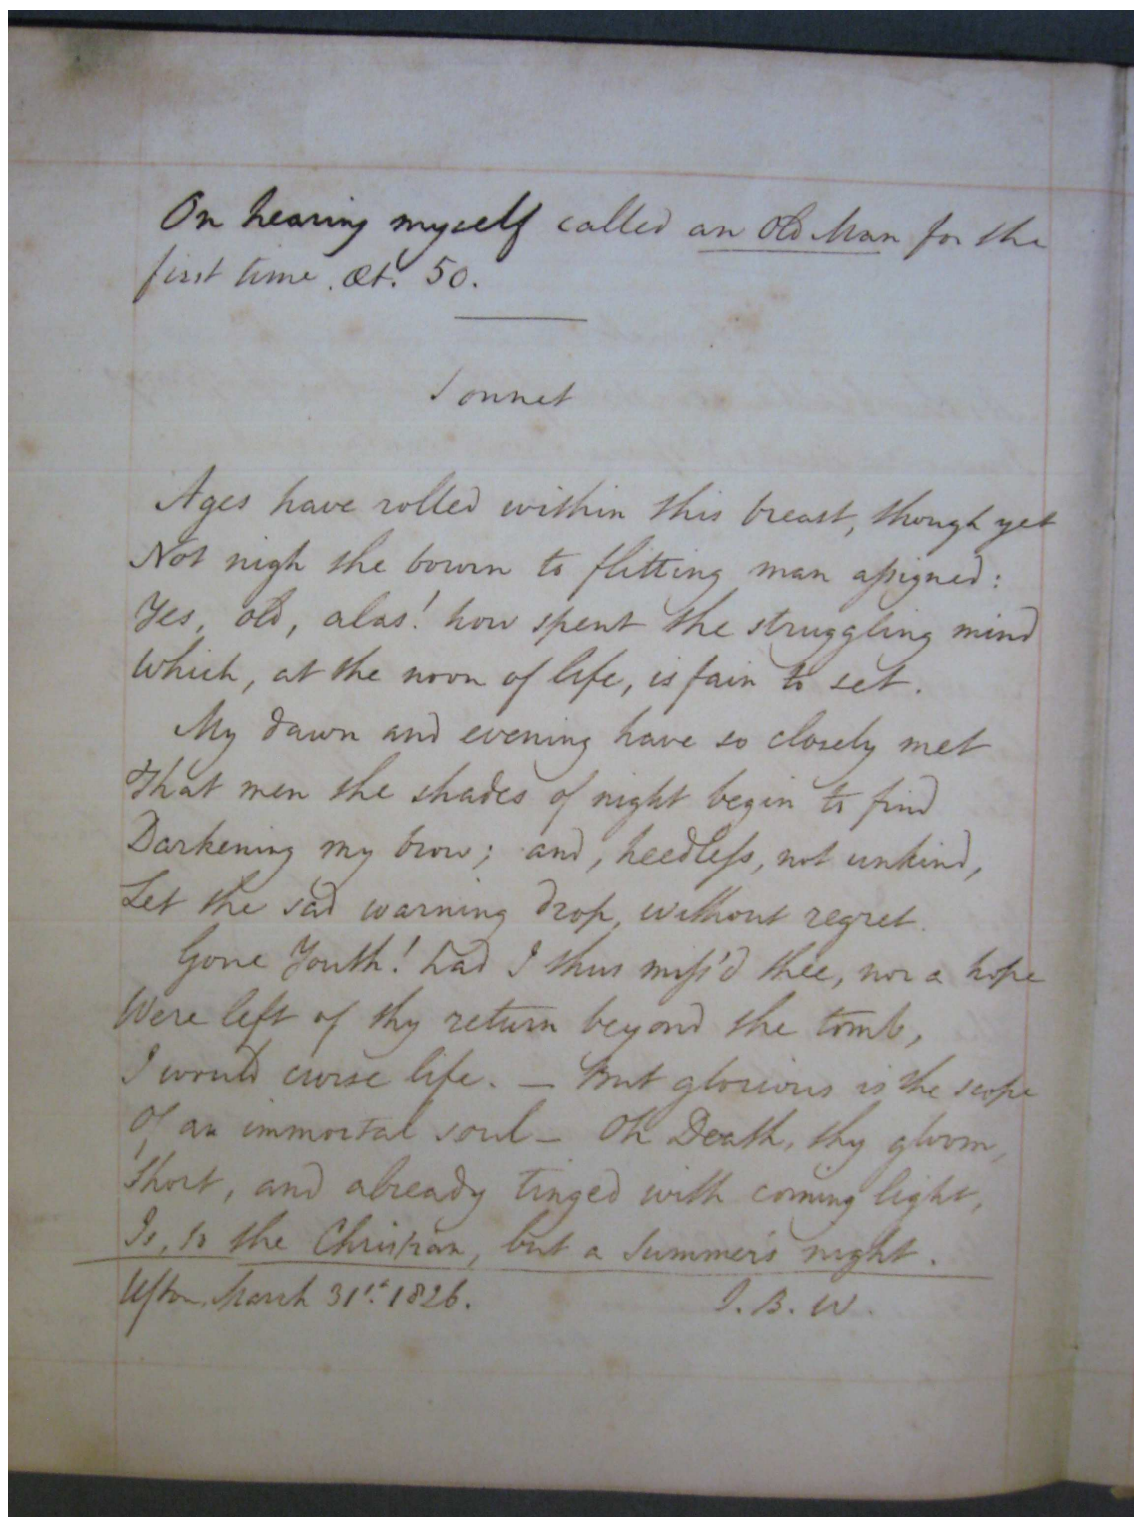 On hearing myself called an Old Man for the
first time. Æt. 50.
Sonnet
Ages have rolled within this breast, though yet
Not nigh the bourn to flitting man assigned:
Yes, old, alas! how spent the struggling mind
Which, at the noon of life, is fain to set.
My dawn and evening have so closely met
That men the shades of night begin to find
Darkening my brow; and, heedless, not unkind,
Let the sad warning drop, without regret.
Gone Youth! had I thus miss'd thee, nor a hope
Were left of thy return beyond the tomb,
I would curse life. — But glorious is the scope
Of an immortal soul — Oh Death, thy gloom,
Short, and already tinged with coming light,
Is, to the Christian, but a Summer's night.
Ufton, March 31st. 1826. J. B. W.